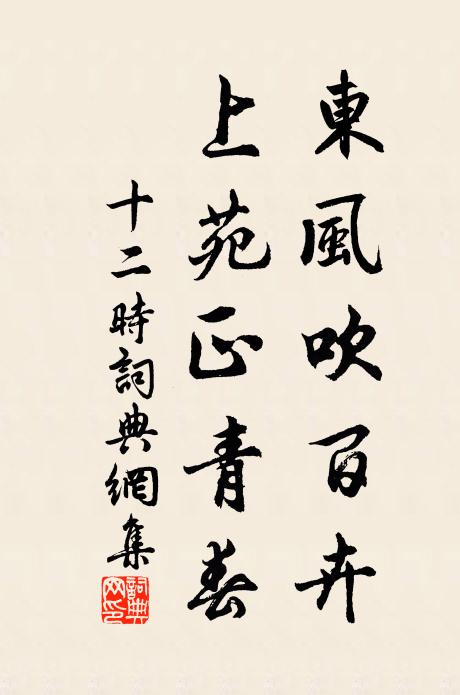 東風吹百卉
上苑正青春
十二時詞典網集
詞典
网印